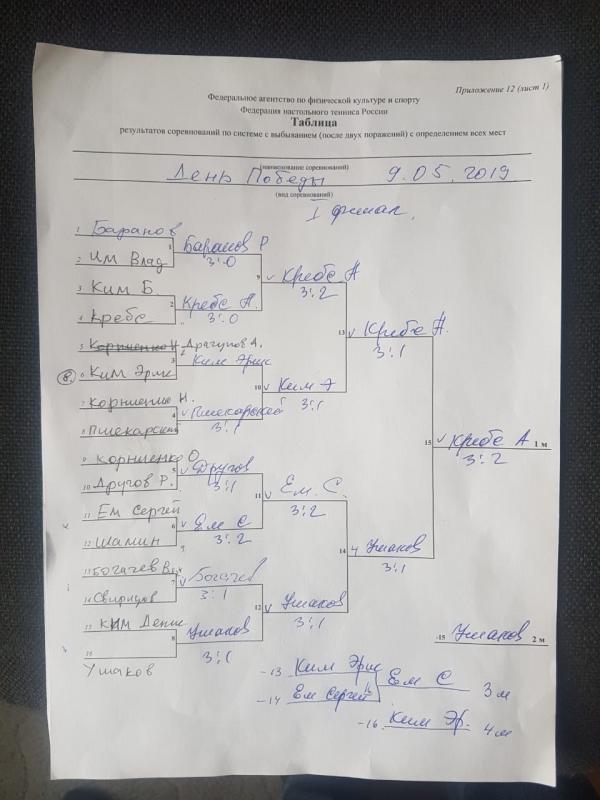 Приложение 12 (лист 1)
Федеральное агентство по физической культуре и спорту
Федерация настольного тенниса России
Таблица
результатов соревнований по системе с выбыванием (после двух поражений) с определением всех мест
(наименование соревнований)
День Победы 9.05.2019
(вид соревнований)
I финал.
1 Баранов
1 Баранов Р
3:0
2 Им Влад
9 Кребс А
3:2
3 Ким Б
2 Кребс А.
3:0
4 Кребс
13 Кребс А.
3:1
5 Корниенко И Драгунов А.
3 Ким Эрик
6 Ким Эрик
10 Ким Э
3:1
7 Корниенко Н.
4 Пшекарский Г
3:1
8 Пшекарский
15 Кребс А 1 м
3:2
9 Корниенко О
5 Другов
3:1
10 Другов Р.
11 Ем. С.
3:2
11 Ем Сергей
6 Ем С
3:2
12 Шамин
14 Ушаков
3:1
13 Богачев Вл.
7 Богачев
3:1
14 Свиридов
12 Ушаков
3:1
15 Ким Денис
8 Ушаков
3:1
16
Ушаков
-15 Ушаков 2 м
-13 Ким Эрик
16 Ем С 3 м
-14 Ем Сергей
-16 Ким Эр. 4 м